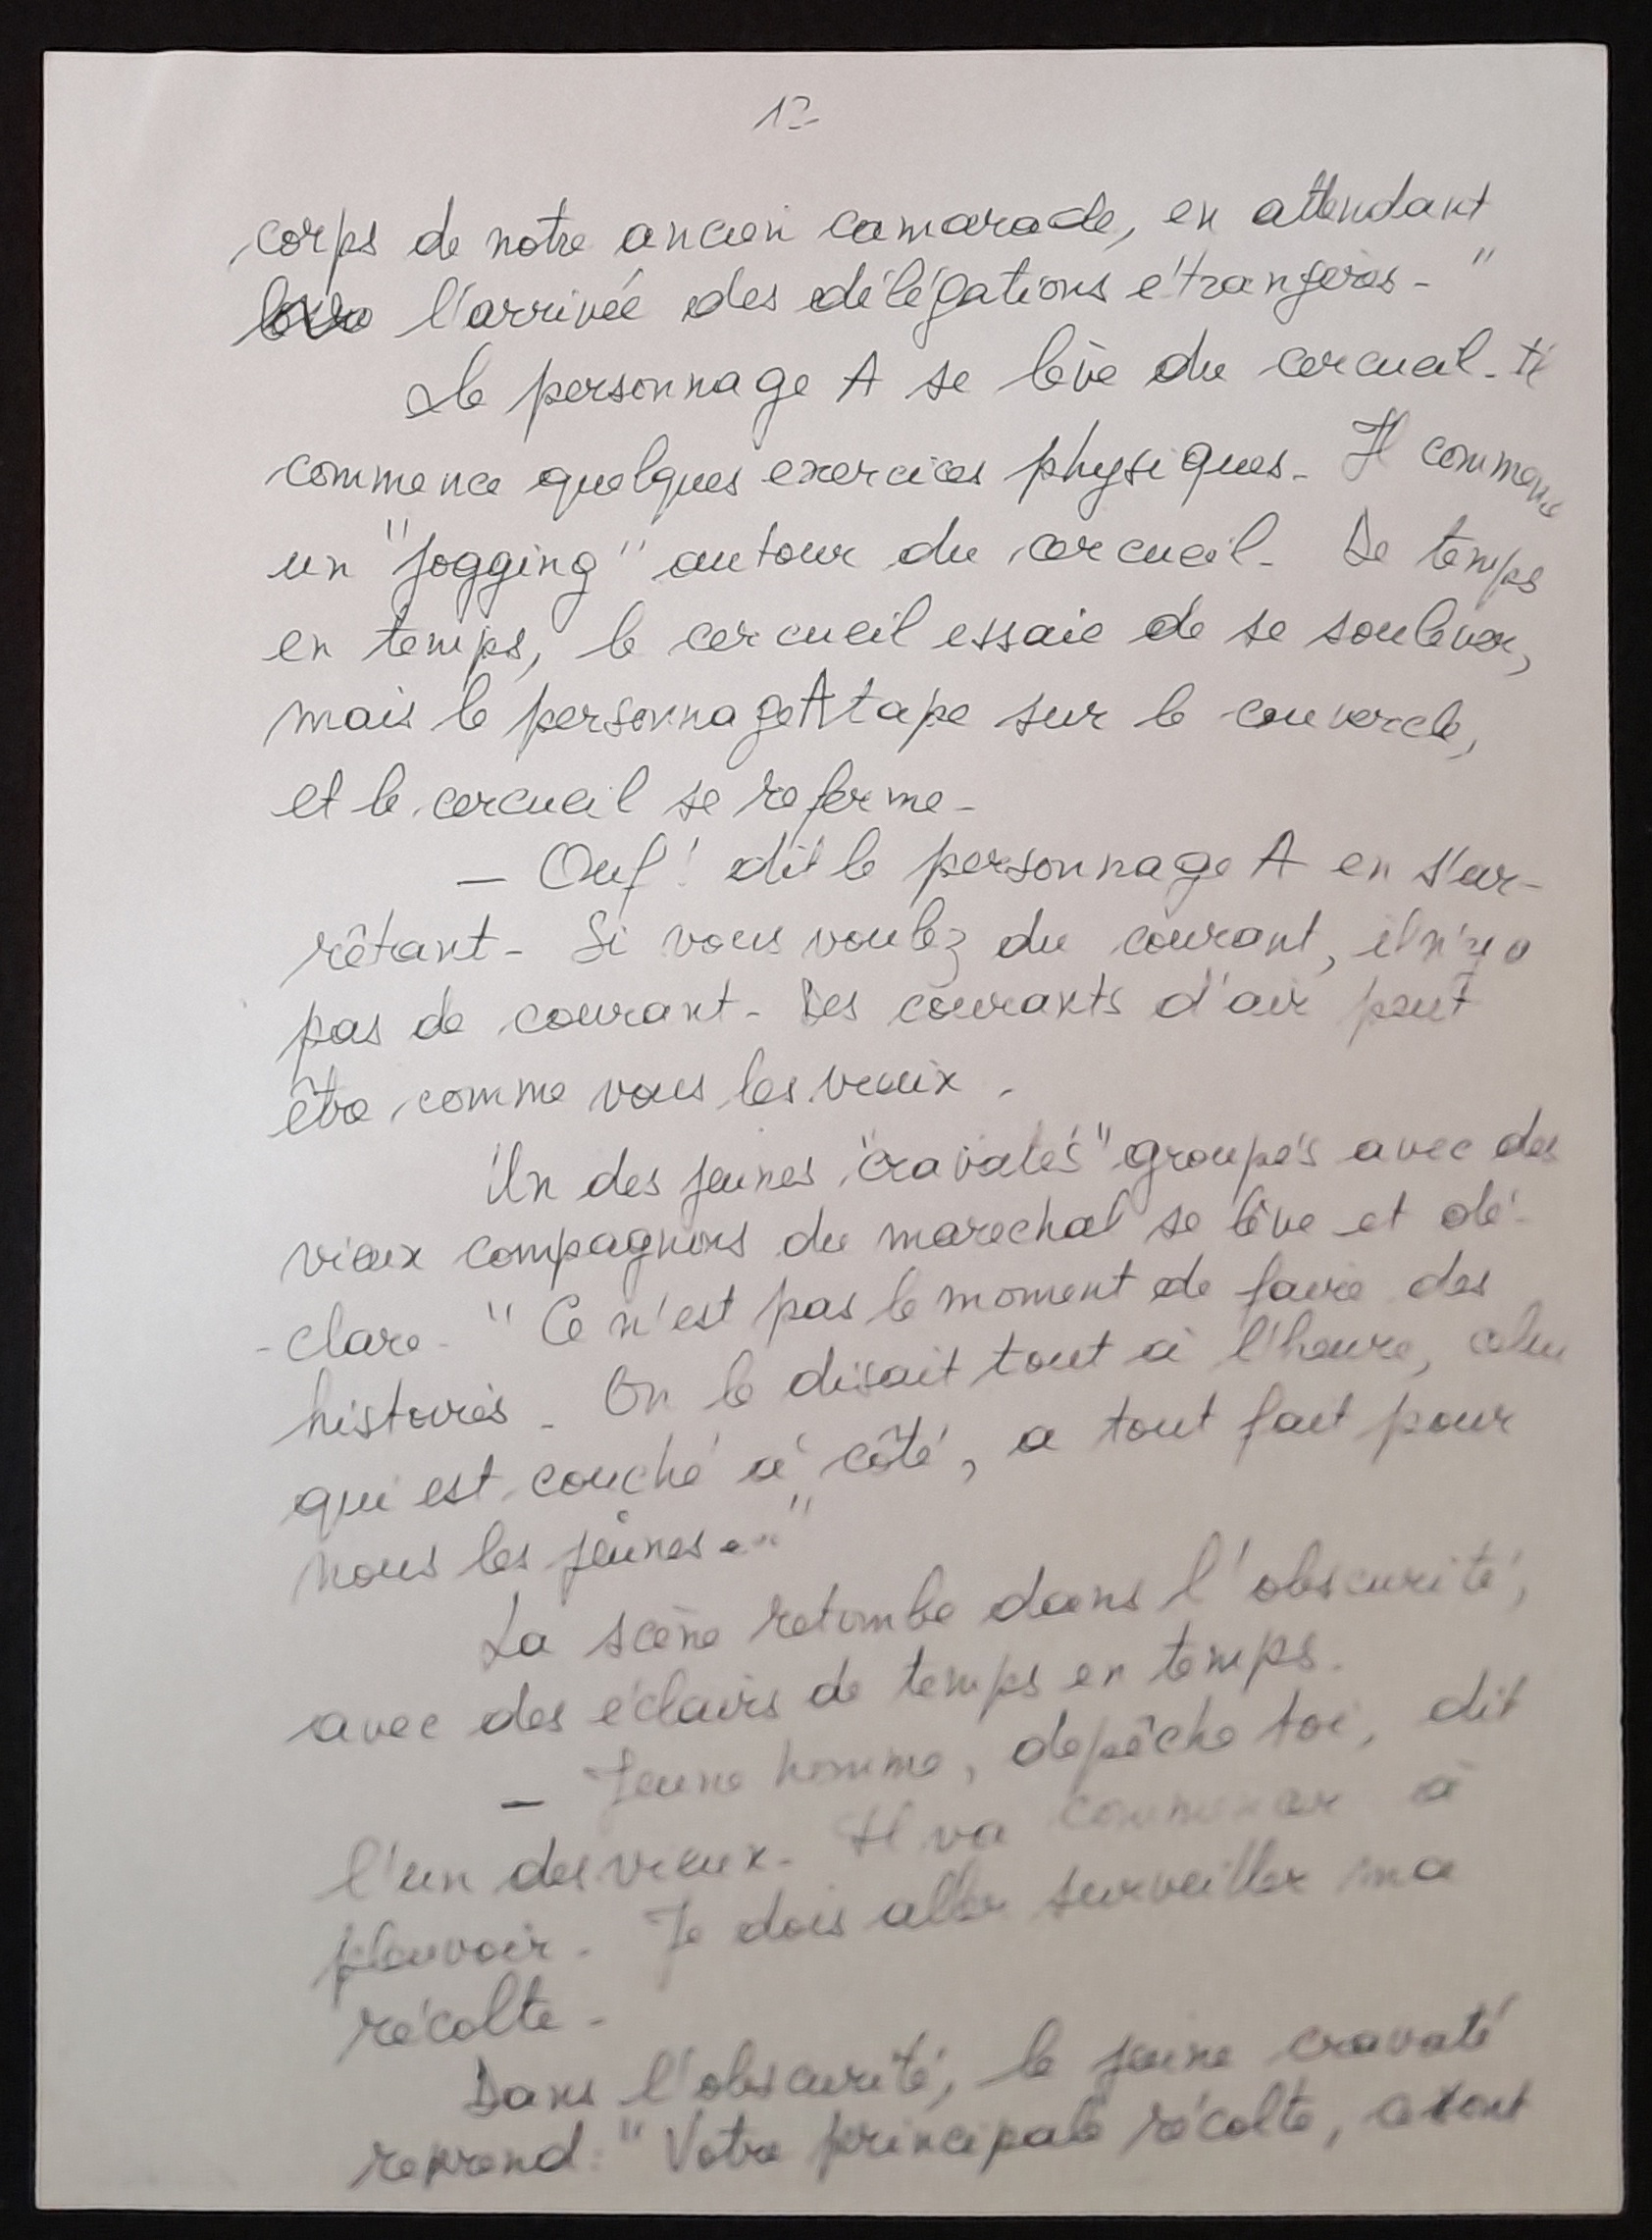 12
corps de notre ancien camarade, en attendant
l'arrivée des délégations étrangères. "
Le personnage A se lève du cercueil. Il
commence quelques exercices physiques. Il commence
un "jogging" autour du cercueil. De temps
en temps, le cercueil essaie de se soulever,
mais le personnage A tape sur le couvercle,
et le cercueil se referme.
— Ouf! dit le personnage A en s'ar-
rêtant. Si vous voulez du courant, il n'y a
pas de courant. Des courants d'air peut
être comme vous les vieux.
Un des jeunes "cravatés" groupés avec des
vieux compagnons du marechal se lève et dé-
-clare. " Ce n'est pas le moment de faire des
histoires. On le disait tout à l'heure, celui
qui est couché à côté, a tout fait pour
nous les jeunes..."
La scène retombe dans l'obscurité,
avec des éclairs de temps en temps.
— Jeune homme, depêche toi, dit
l'un des vieux. Il va commencer à
pleuvoir. Je dois aller surveiller ma
récolte.
Dans l'obscurité, le jeune cravaté
reprend: " Votre principale récolte, ce sont